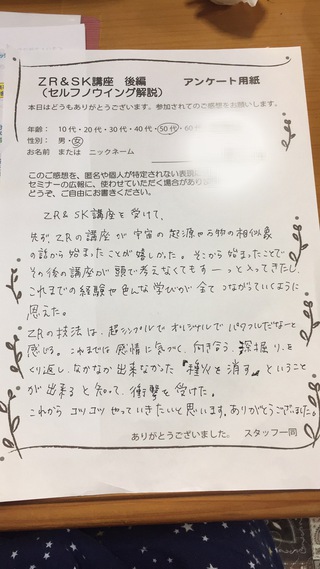 ZR&SK講座 後編 アンケート用紙
(セルフノウイング解説)
本日はどうもありがとうございます。参加されてのご感想をお願いします。
年齢： 10代・20代・30代・40代・50代・60
性別： 男・女
お名前 または ニックネーム
このご感想を、匿名や個人が特定されない表現
セミナーの広報に、使わせていただく場合があり
どうぞ、ご自由にお書きください。
ZR&SK講座を受けて、
先ず、ZRの講座が宇宙の起源や万物の相似象
の話から始まったことが嬉しかった。そこから始まったことで
その後の講座が頭で考えなくてもすーっと入ってきたし、
これまでの経験や色んな学びが全てつながっていくように
思えた。
ZRの技法は、超シンプルでオリジナルでパワフルだなーと
感じる。これまでは感情に気づく、向き合う、深掘り、を
くり返し、なかなか出来なかった『種火を消す』ということ
が出来ると知って、衝撃を受けた。
これからコツコツやっていきたいと思います。ありがとうございました。
ありがとうございました。 スタッフ一同